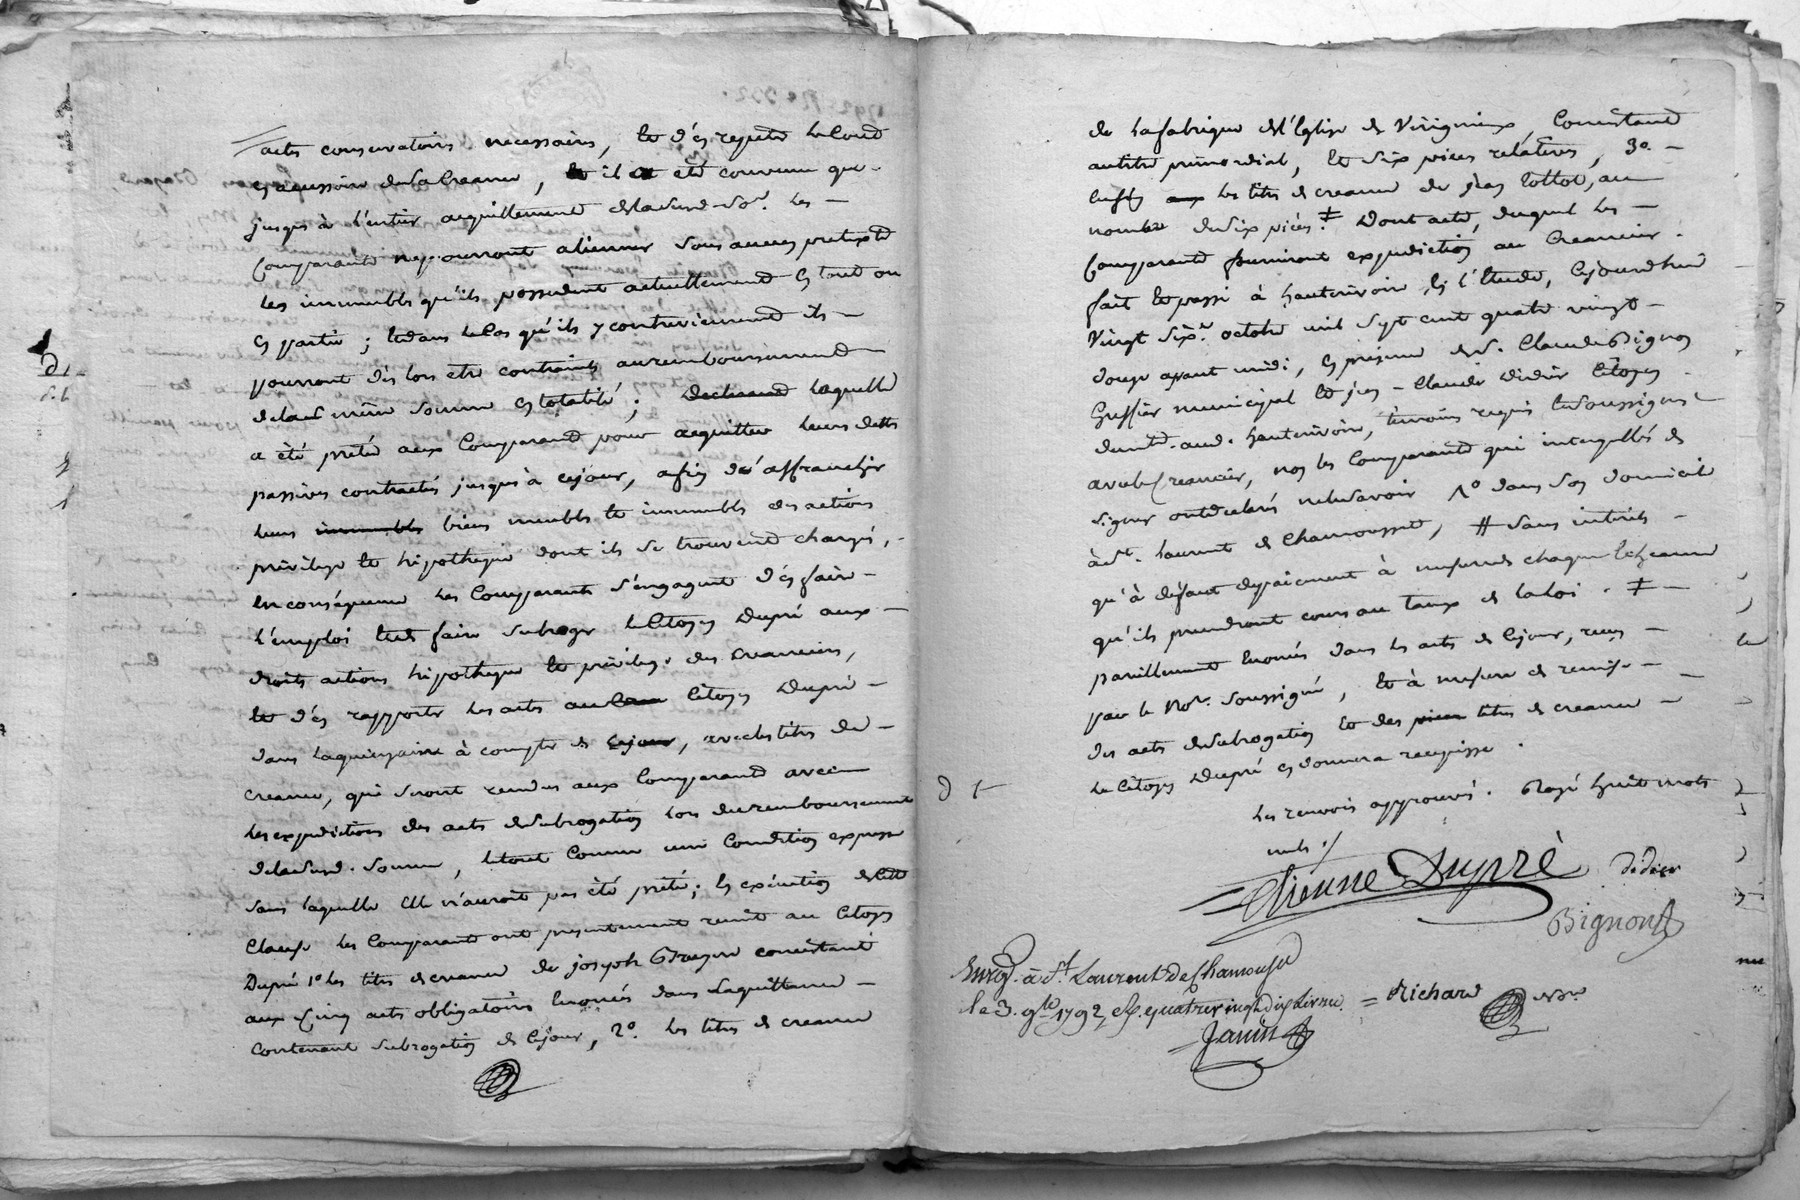 actes conservatoires necessaires, et d'en repeter le cout
en accessoire de sa creance, et il a eté convenu que
jusqu'à l'entier acquittement de lasusd. so.e les
Comparants ne pourront aliener sous aucun pretexte
les immeubles qu'ils possedent actuellement en tout ou
en partie; et dans le cas qu'ils y contreviennent ils
pourront dès lors etre contraints au remboursement
de lad. même somme en totalité; Declarant laquelle
a été prêtée aux Comparants pour acquitter leurs dettes
passives contractées jusqu'à cejour, afin d'affranchir
leurs immeubles biens meubles et immeubles des actions
privilege et hipotheque dont ils se trouvent chargés,
en conséquence les Comparants s'engagent d'en faire
l'emploi et de faire subroger le Citoyen Dupré aux
droits actions hipotheque et privilege des creanciers,
et d'en rapporter les actes au Citoyen Dupré
dans la quinzaine à compter de cejour, avec les titres de
creance, qui seront rendus aux Comparants avec
les expeditions des actes de subrogation lors du remboursement
de lasusd. somme, le tout comme une Condition expresse
sans laquelle elle n'auroit pas été prêtée; en exécution de cette
Clause les Comparants ont presentement remit au Citoyen
Dupré 1o les titres de creance de joseph consistant
aux Cinq actes obligatoires enoncés dans la quittance
contenant subrogation de cejour, 2o. les titres de creance
de la fabrique de l'Eglise de Virigneux, Consistant
au titre primordial, et six pieces relatives, 3o.
enfin les titres de creance de jean, au
nombre de six pieces. ≠ Dont acte, duquel les
Comparants fourniront expedition au Creancier.
fait et passé à hauterivoire en l'Etude, cejourdhui
Vingt six.e octobre mil sept cent quatre vingt
douze avant midi, en presence de s. Claude Bignon
Greffier municipal et jean-Claude Didier Citoyen
dud. hauterivoire, temoins requis et soussignés
avec le Creancier, non les Comparants qui interpellés de
signer ont declarés ne le savoir /o dans son domicile
à st. laurent de Chamousset, # sans interets
qu'à défaut de paiement à mesure de chaque echeance
qu'ils prendront cours au taux de la loi. ≠
pareillement enoncés dans les actes de cejour, reçus
par le No.re soussigné, et à mesure de remise
des actes de subrogation et des pieces titres de creance
le Citoyen Dupré en donnera recepisse.
les renvois approuvés. Rayé huit mots
nuls./
Etienne Dupré didier
Bignon
Enreg. à St. Laurent de Chamousset
le 3. 9bre 1792
Janin
Richard No.re